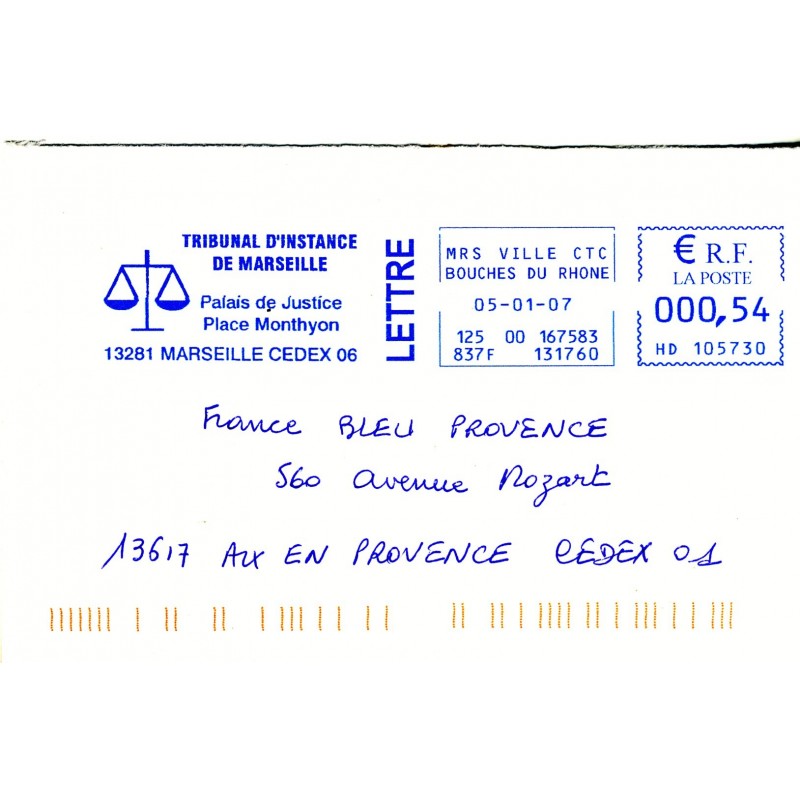 TRIBUNAL D'INSTANCE
DE MARSEILLE
Palais de Justice
Place Monthyon
13281 MARSEILLE CEDEX 06
LETTRE
MRS VILLE CTC
BOUCHES DU RHONE
05-01-07
125 00 167583
837F 131760
€ R.F.
LA POSTE
000,54
HD 105730
France BLEU PROVENCE
560 avenue Mozart
13617 AIX EN PROVENCE CEDEX 01